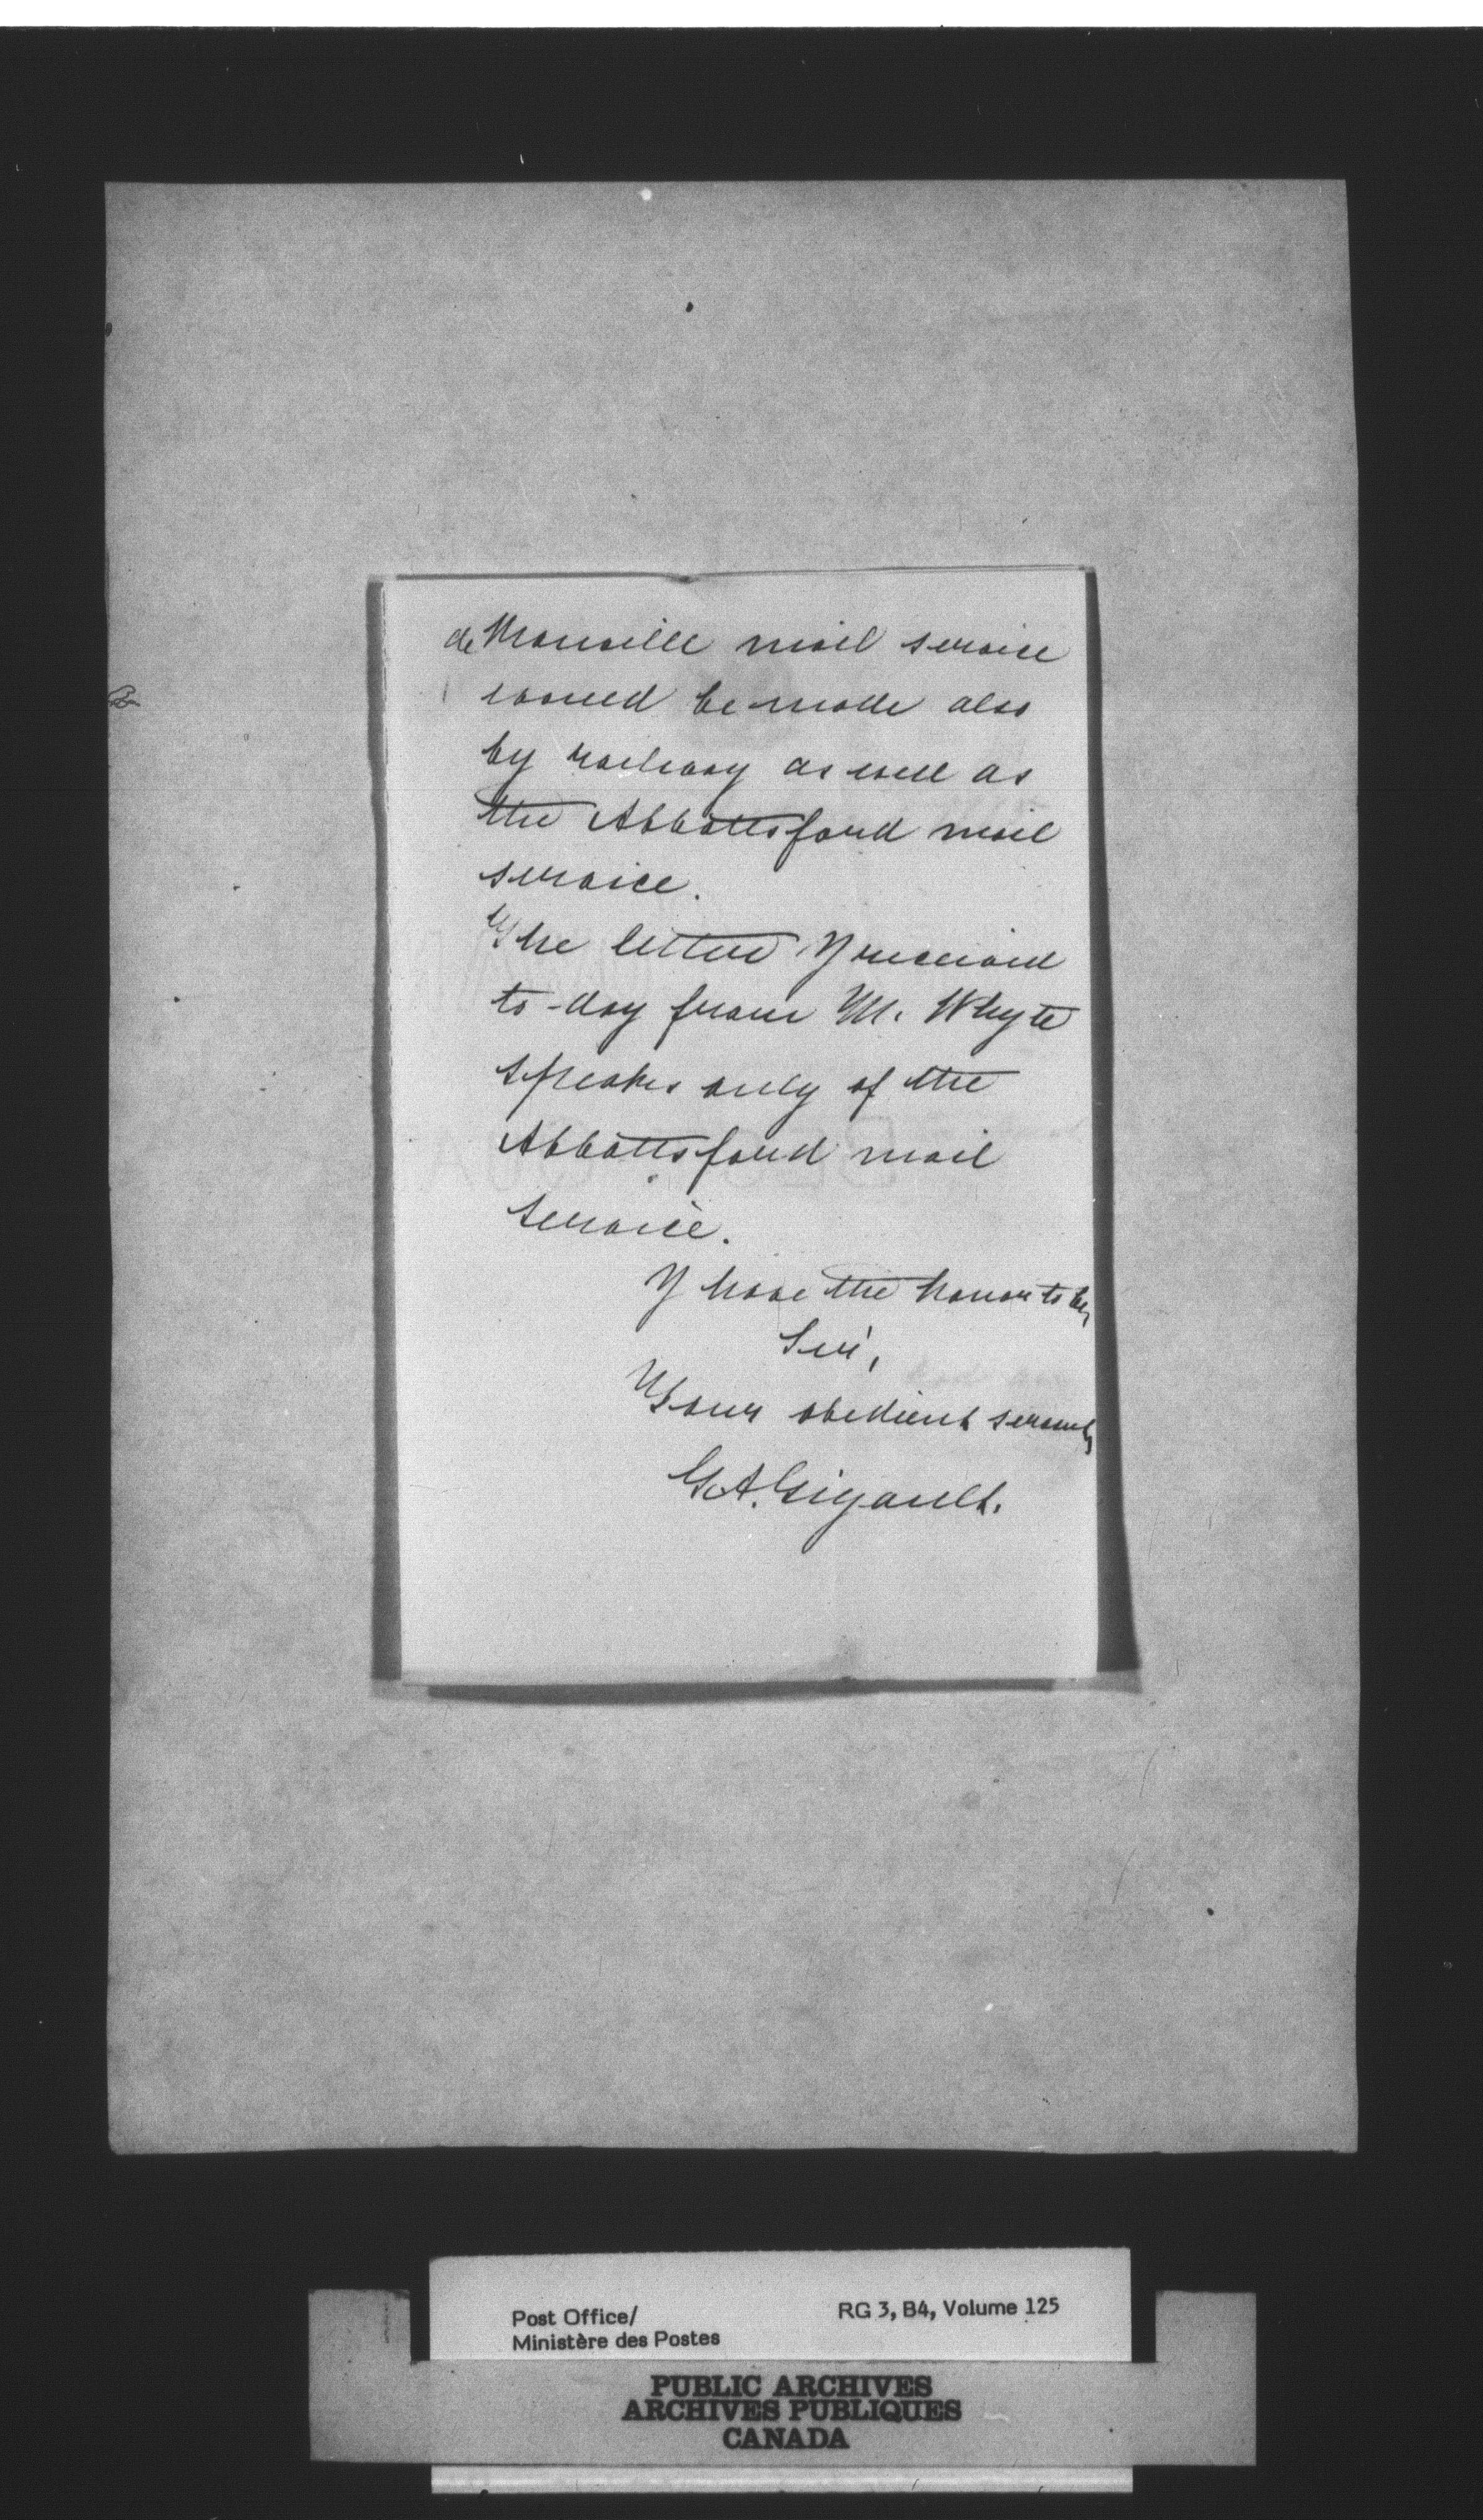 de Monville mail service
would be made also
by railway as well as
the Abbottsford mail
service.
The letter I received
to-day from M. Whyte
speaks only of the
Abbottsford mail
service.
I have the honor to be,
Sir,
Your obedient servant,
G.A. Gigault.
Post Office/
Ministère des Postes
RG 3, B4, Volume 125
PUBLIC ARCHIVES
ARCHIVES PUBLIQUES
CANADA